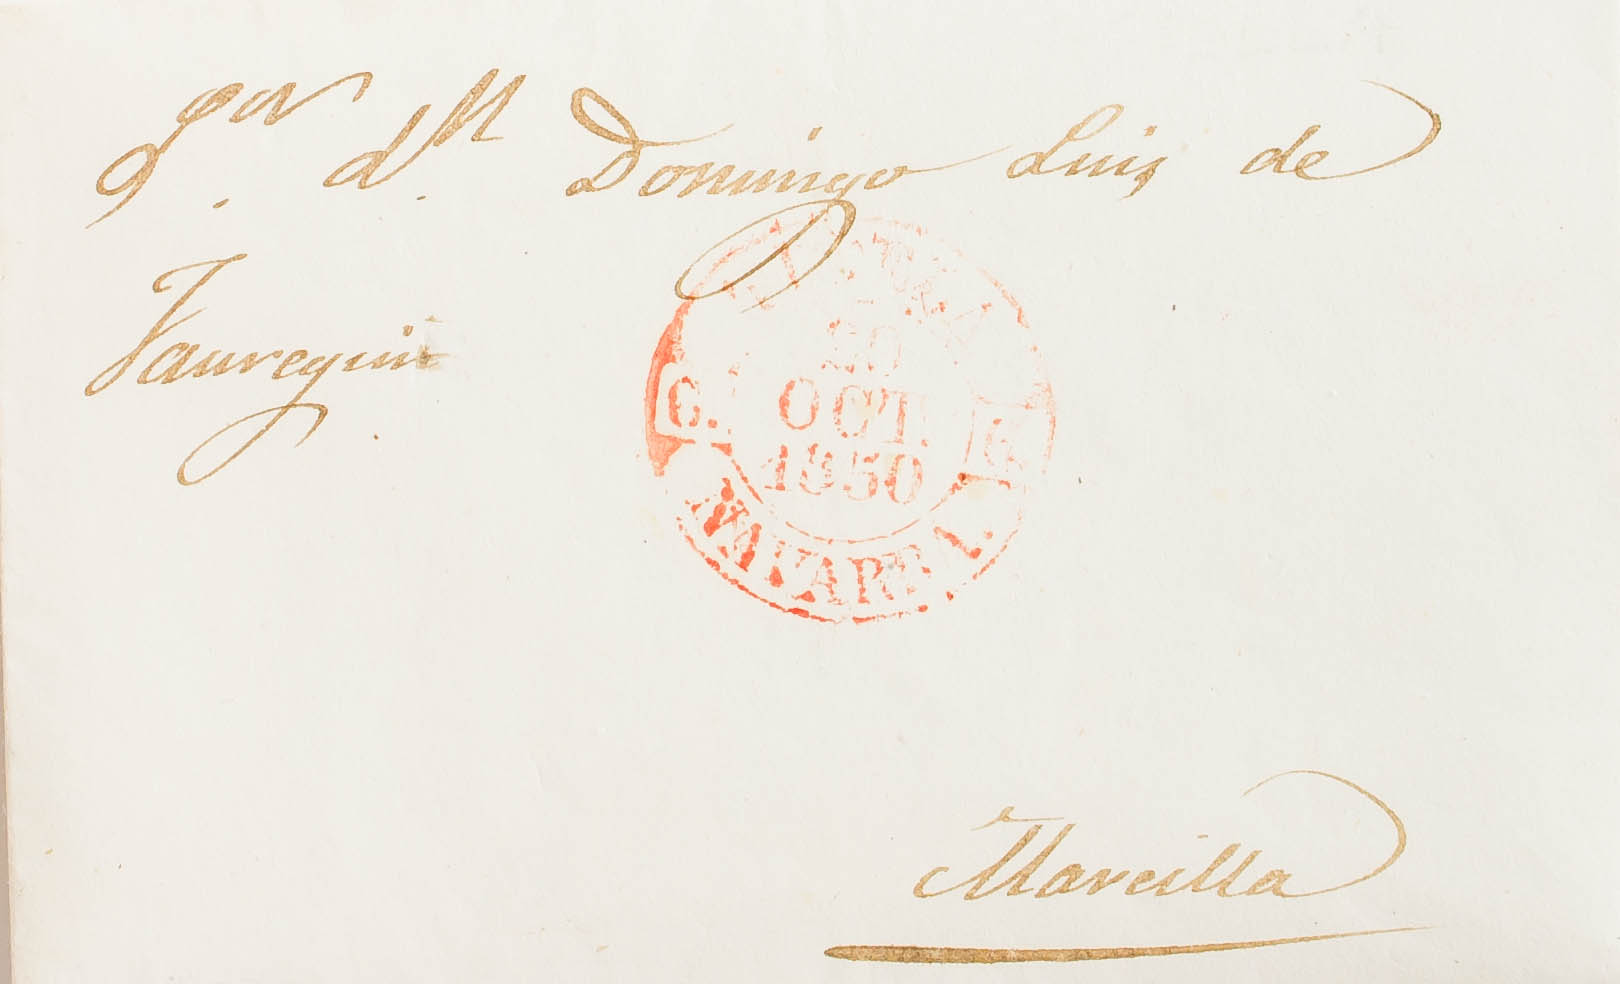 Sor. Dn. Domingo Luis de
Jauregui
20
OCT.
1850
6.
6.
NAVARRA.
Marcilla